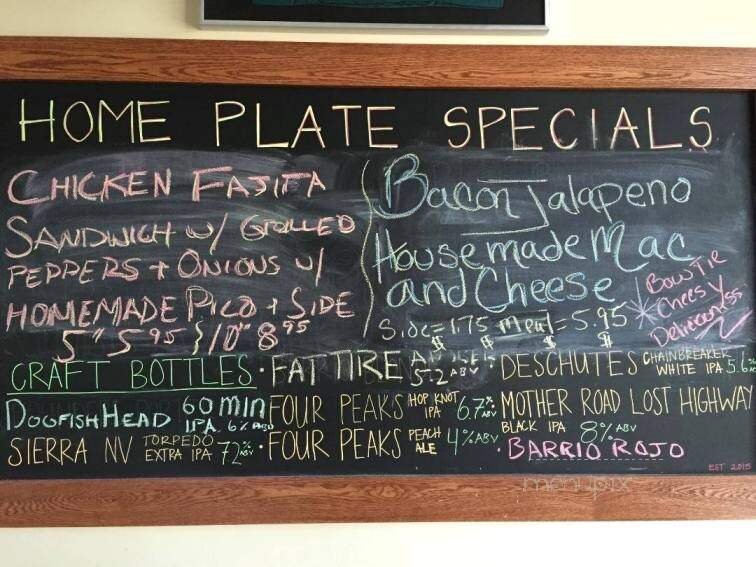 HOME PLATE SPECIALS
CHICKEN FAJITA
SANDWICH W/ GRILLED
PEPPERS + ONIONS W/
HOMEMADE PICO + SIDE
5" 5.95 } 10" 8.95
Bacon Jalapeno
House made Mac
and Cheese
Side = 1.75 Meal = 5.95
$ $
BOWTIE
Cheesy
CRAFT BOTTLES · FAT TIRE 5.2 ABV · DESCHUTES CHAINBREAKER WHITE IPA 5.6%
DOGFISH HEAD 60 MIN IPA 6% ABV FOUR PEAKS HOP KNOT IPA 6.7% ABV MOTHER ROAD LOST HIGHWAY
BLACK IPA 8% ABV
SIERRA NV TORPEDO EXTRA IPA 7.2% ABV · FOUR PEAKS PEACH ALE 4% ABV · BARRIO ROJO
EST 2015
menupix